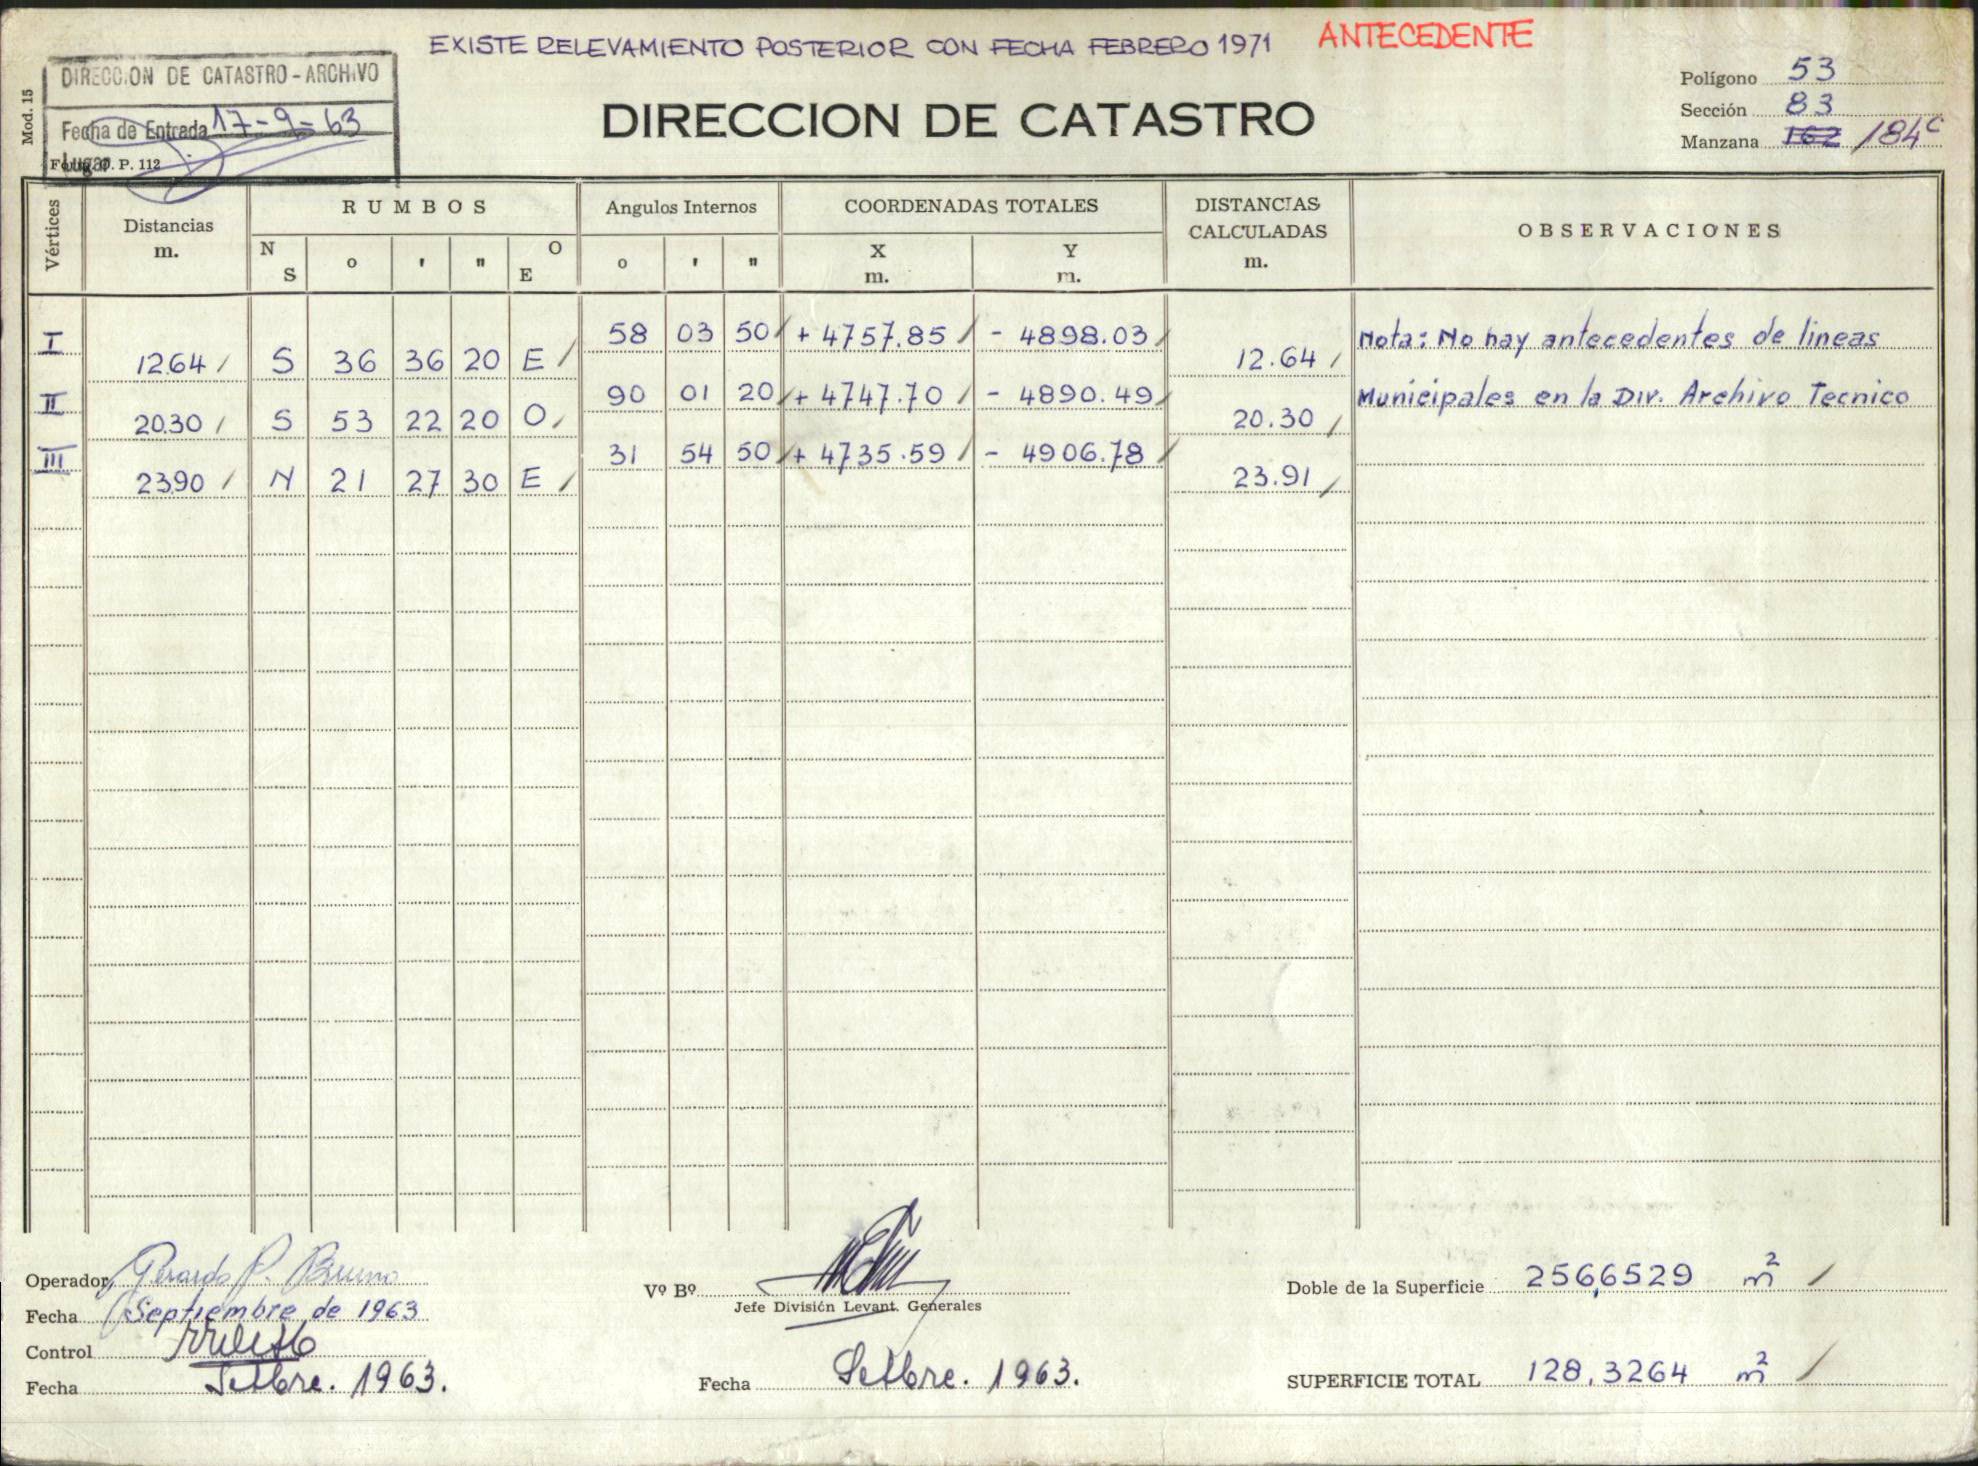 EXISTE RELEVAMIENTO POSTERIOR CON FECHA FEBRERO 1971 ANTECEDENTE
DIRECCION DE CATASTRO - ARCHIVO
Fecha de Entrada 17-9-63
Lugar
O. P. 112
Mod. 15
DIRECCION DE CATASTRO
Polígono 53
Sección 83
Manzana 162 184c
Vértices
Distancias m.
RUMBOS
N S o ' " O E
Angulos Internos
o ' "
COORDENADAS TOTALES
X m. Y m.
DISTANCIAS CALCULADAS m.
OBSERVACIONES
I 58 03 50 + 4757.85 - 4898.03 Nota: No hay antecedentes de lineas
12.64 S 36 36 20 E 12.64
II 90 01 20 + 4747.70 - 4890.49 Municipales en la Div. Archivo Tecnico
20.30 S 53 22 20 O 20.30
III 31 54 50 + 4735.59 - 4906.78
23.90 N 21 27 30 E 23.91
Operador Gerardo P. Bruno
Fecha Septiembre de 1963
Control
Fecha Setbre. 1963.
Vº Bº
Jefe División Levant. Generales
Fecha Setbre. 1963.
Doble de la Superficie 256,6529 m2
SUPERFICIE TOTAL 128,3264 m2